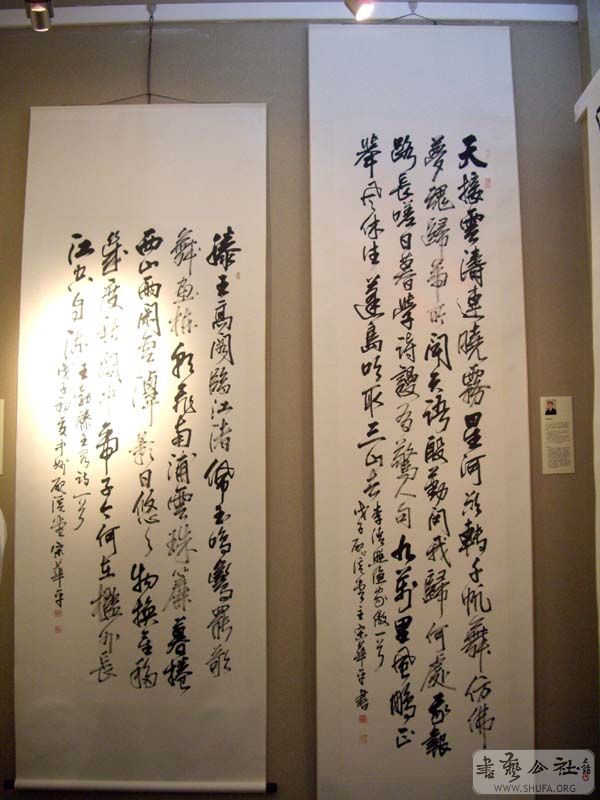 天接雲濤連曉霧星河欲轉千帆舞仿佛
夢魂歸帝所聞天語殷勤問我歸何處我報
路長嗟日暮學詩謾有驚人句九萬里風鵬正
舉風休住蓬島吹取三山去 李清照漁家傲一首
戊子硯溪堂主宋華平書
滕王高閣臨江渚佩玉鳴鸞罷歌
舞畫棟朝飛南浦雲珠簾暮捲
西山雨閑雲潭影日悠々物換星移
幾度秋閣中帝子今何在檻外長
江空自流 王勃滕王閣詩一首
戊子初夏於硯溪堂宋華平
書藝公社
WWW.SHUFA.ORG